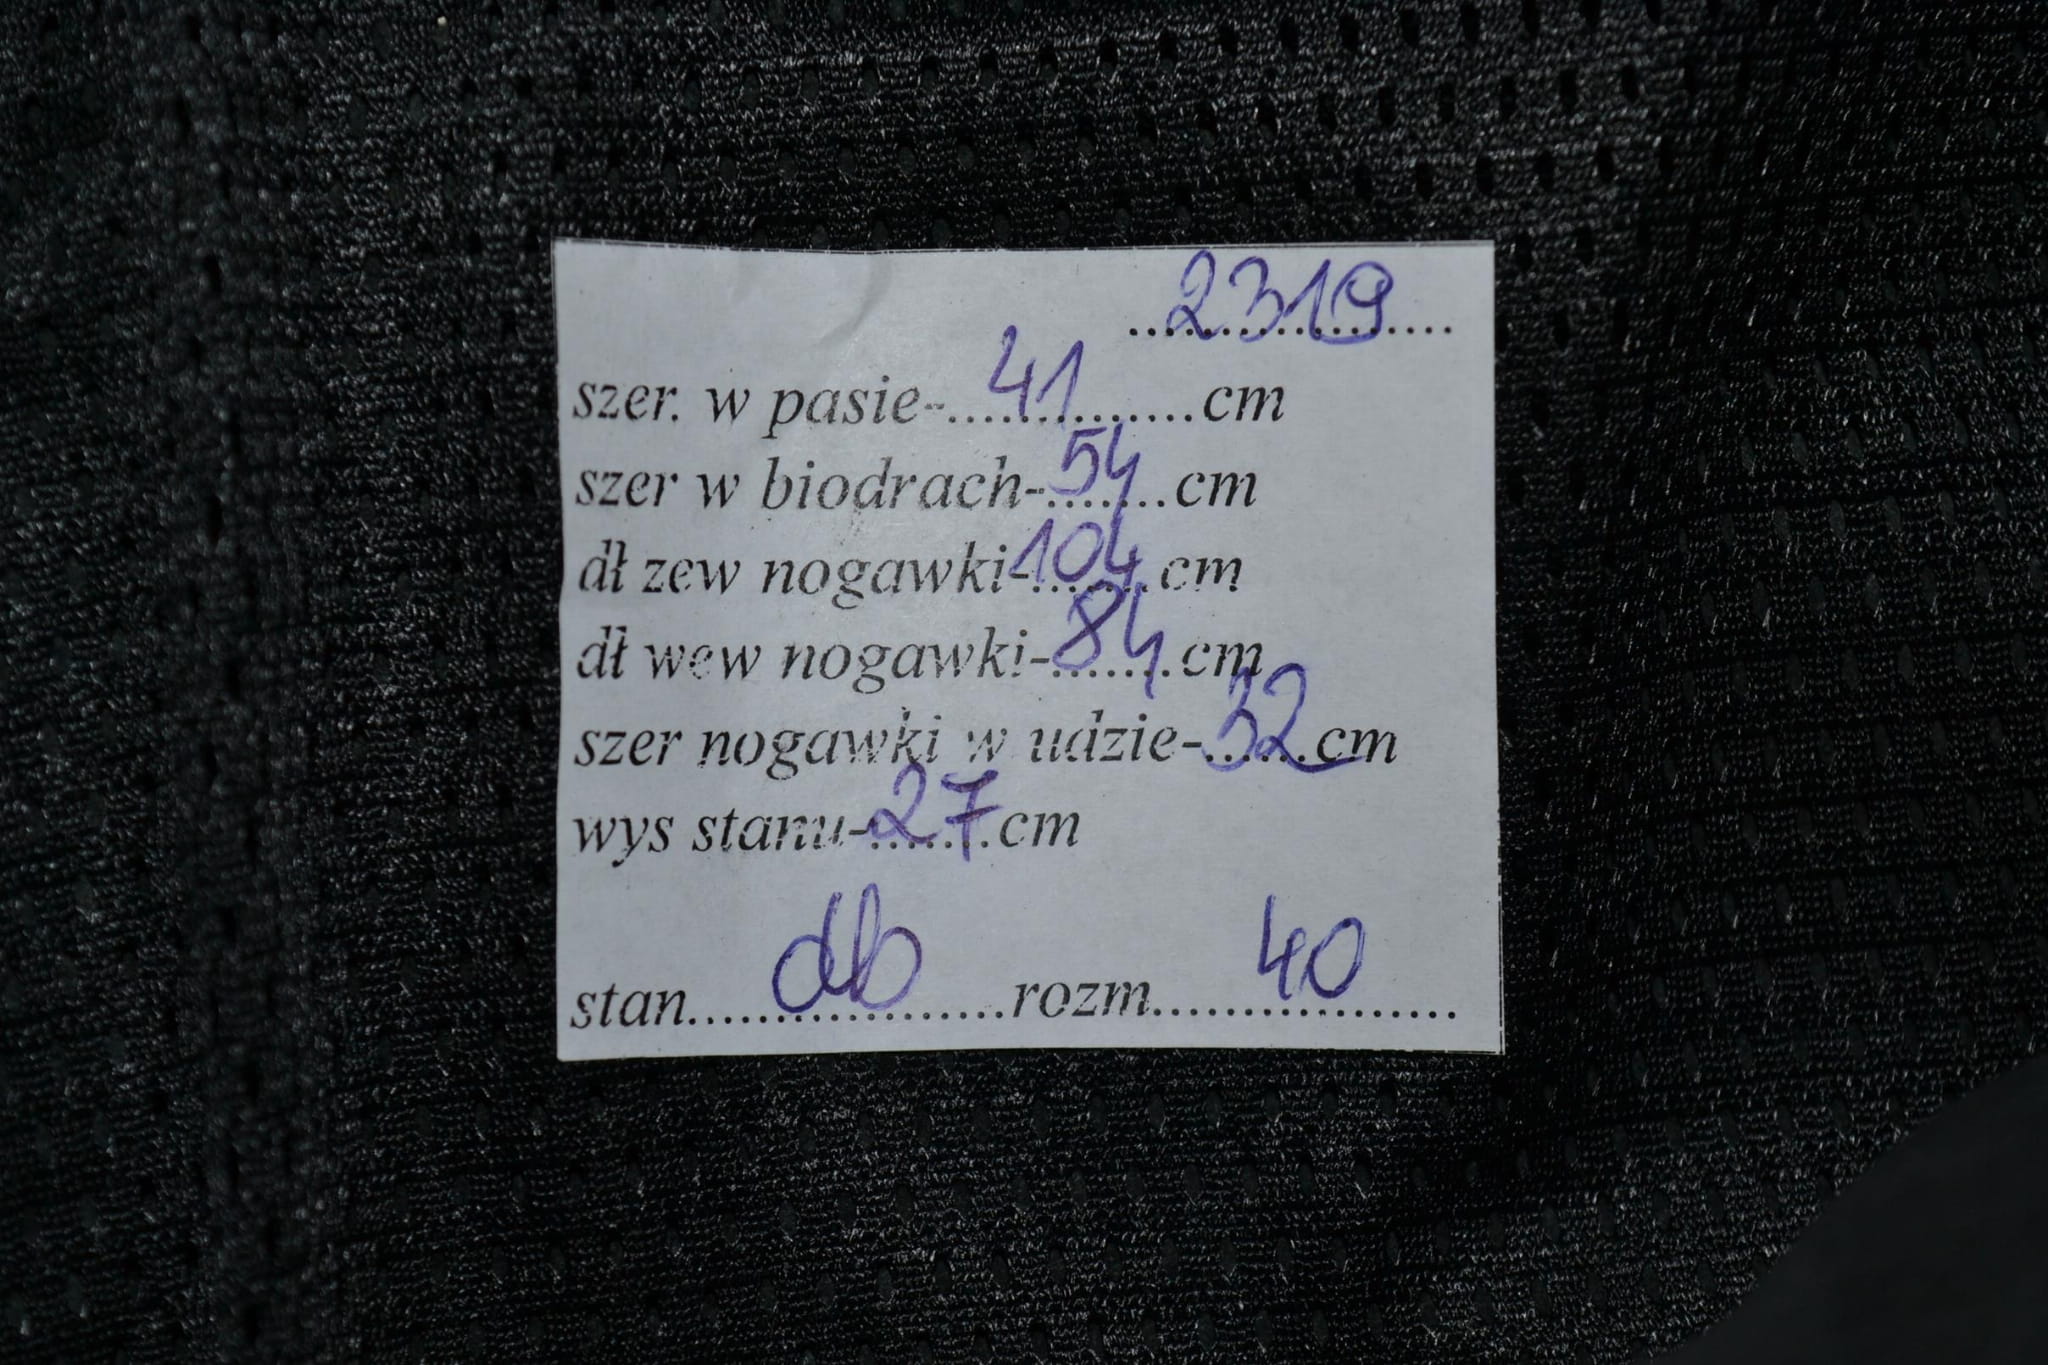 2319
szer. w pasie-...41...cm
szer w biodrach-...54...cm
dł zew nogawki-104...cm
dł wew nogawki-84...cm
szer nogawki w udzie-32...cm
wys stanu-27...cm
stan...db...rozm...40...